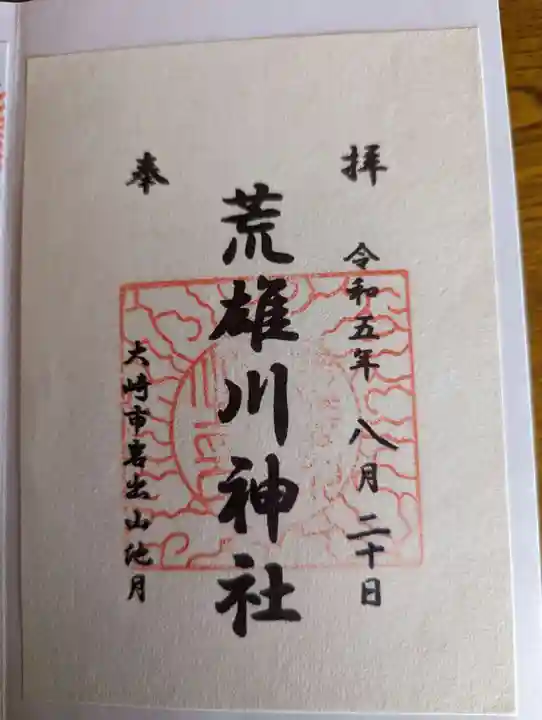 奉拝
令和五年 八月二十日
荒雄川神社
大崎市岩出山池月